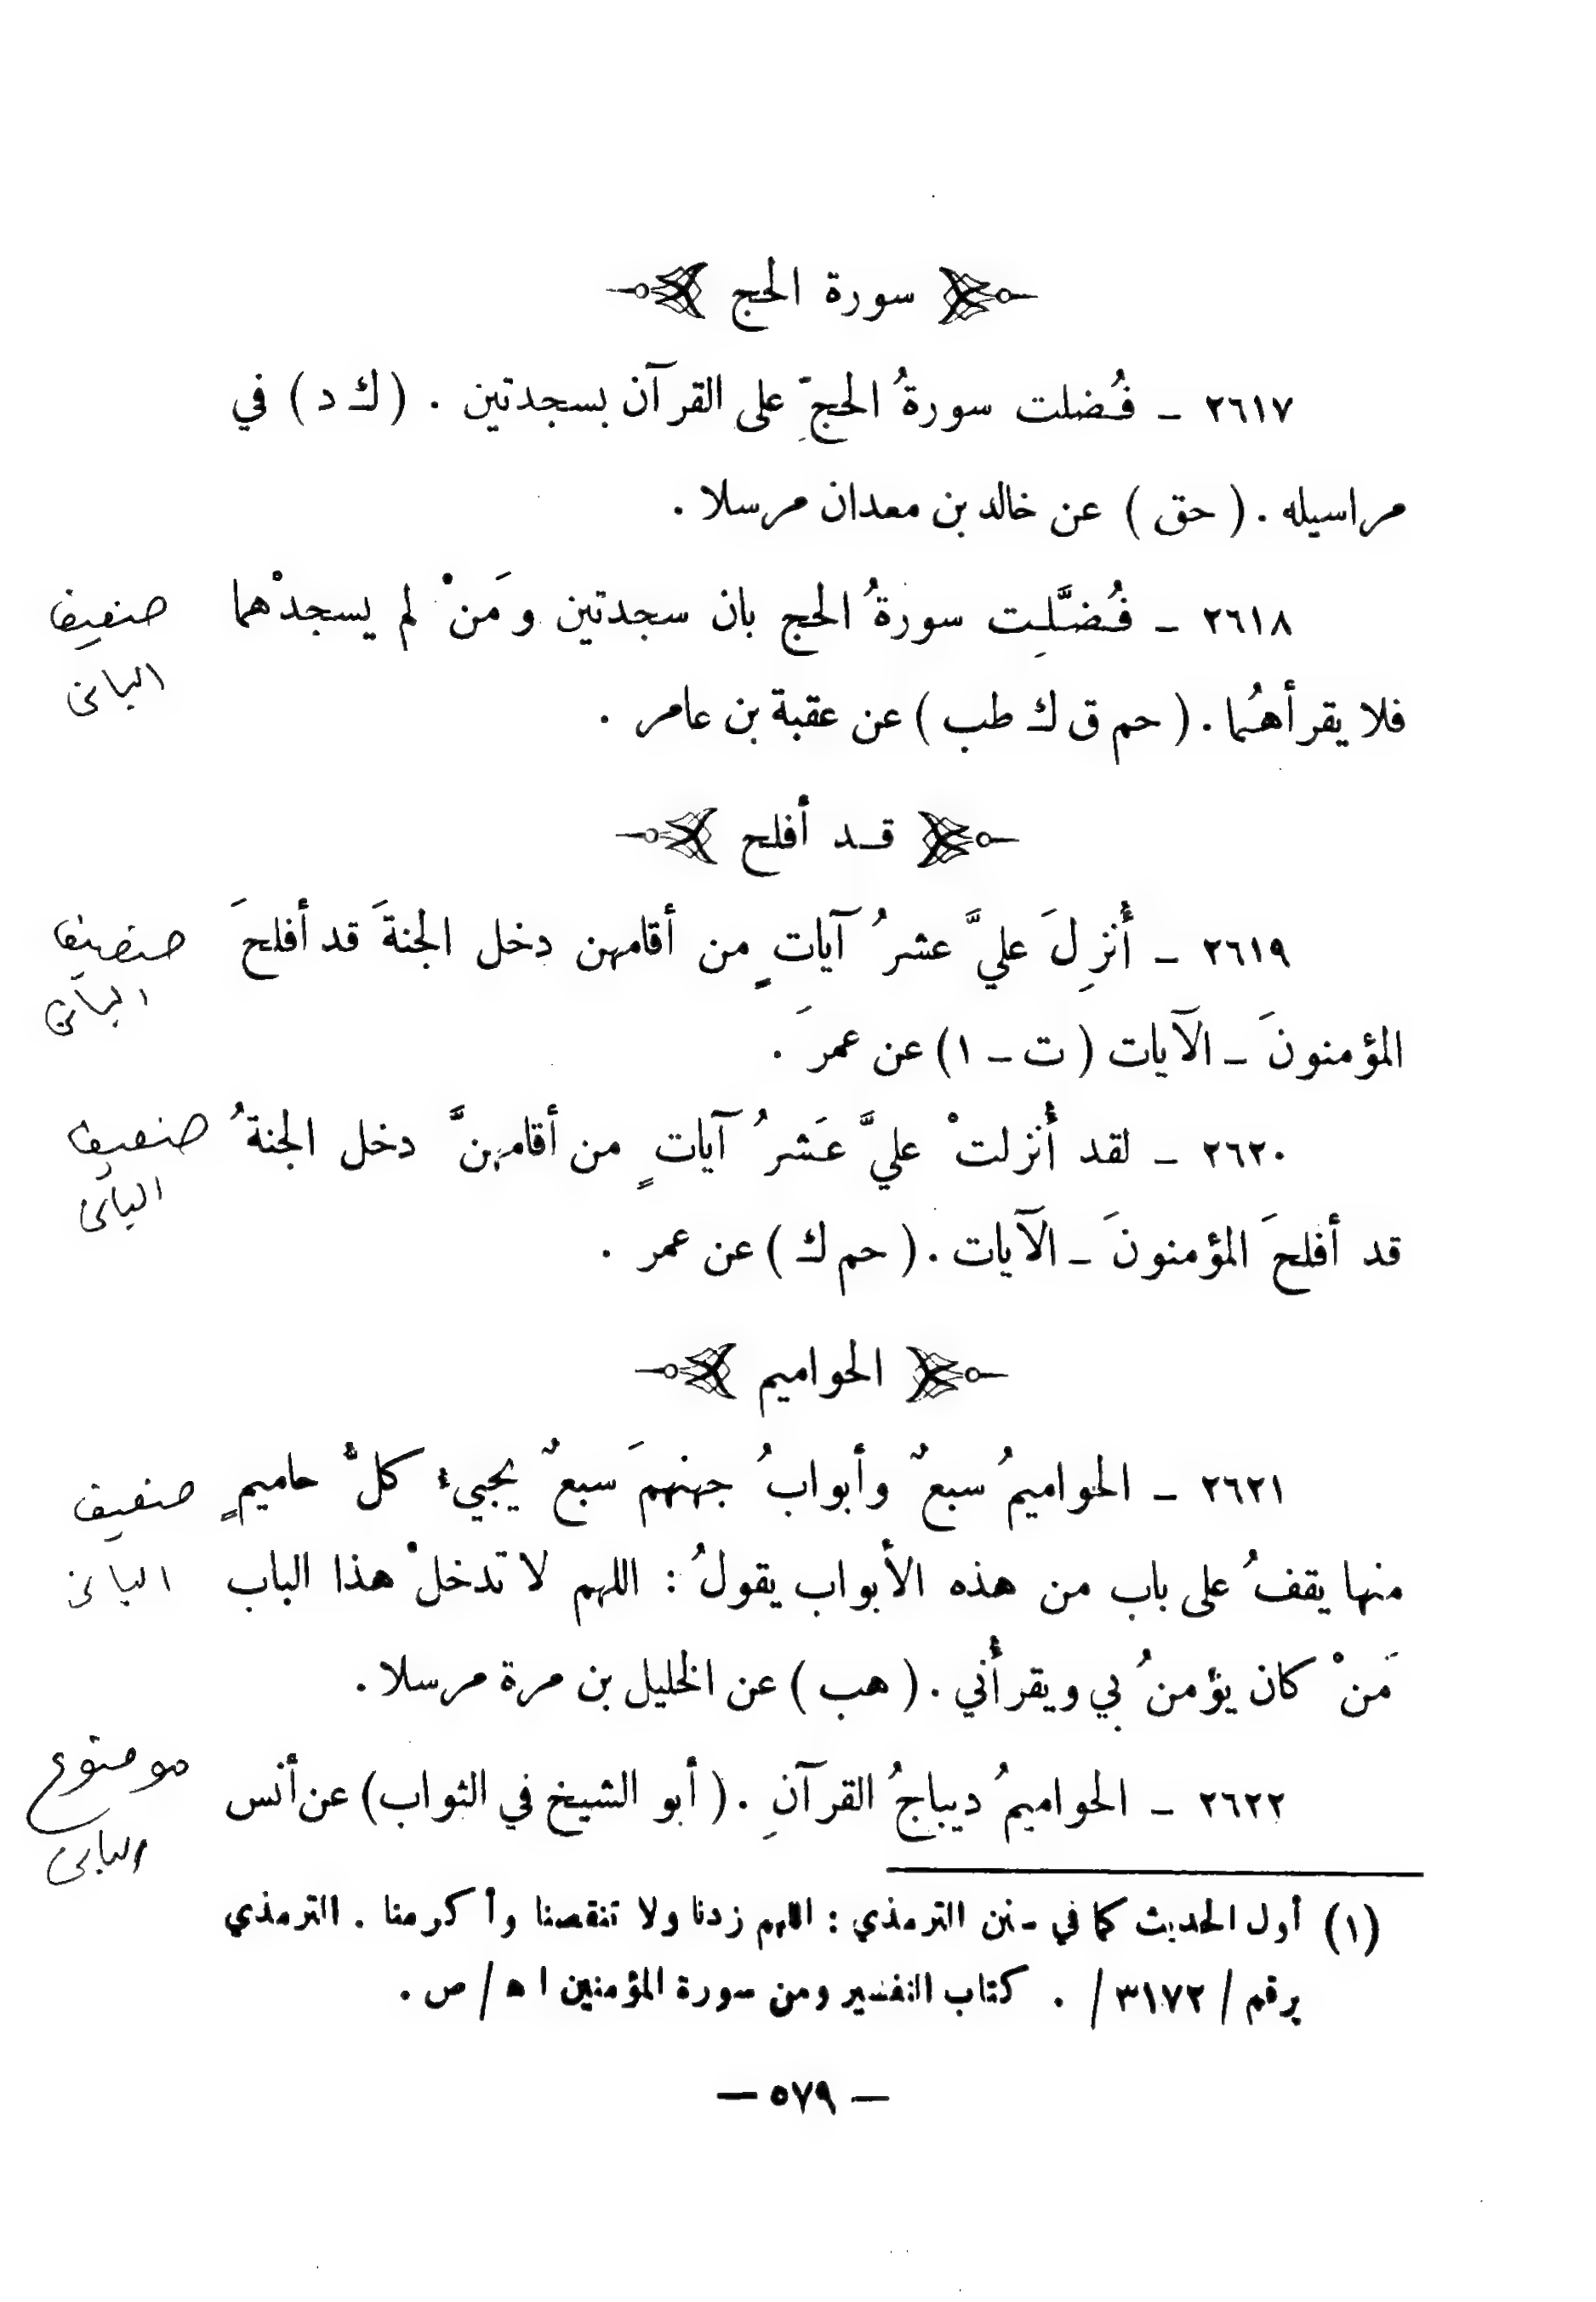 سورة الحج
٢٦١٧ ـ فُضلت سورةُ الحجِّ على القرآن بسجدتين . ( ك د ) في
مراسيله . ( حق ) عن خالد بن معدان مرسلا .
٢٦١٨ ـ فُضَّلِت سورةُ الحج بان سجدتين ومَنْ لم يسجدْهما
ضعيف
البانى
فلا يقرأهُما . ( حم ق ك طب ) عن عقبة بن عامر .
قد أفلح
٢٦١٩ ـ أُنزِلَ عليَّ عشرُ آياتٍ من أقامهن دخل الجنةَ قد أفلحَ
ضعيف
البانى
المؤمنونَ ـ الآيات ( ت ـ ١ ) عن عمرَ .
٢٦٢٠ ـ لقد أُنزلتْ عليَّ عَشرُ آياتٍ من أقامهنَّ دخل الجنةُ
ضعيف
البانى
قد أفلحَ المؤمنونَ ـ الآيات . ( حم ك ) عن عمر .
الحواميم
٢٦٢١ ـ الحواميمُ سبعٌ وأبوابُ جهنهمَ سبعٌ يجييء كلُّ حاميمٍ
ضعيف
منها يقفُ على باب من هذه الأبواب يقولُ : اللهم لا تدخلْ هذا الباب
البانى
مَنْ كان يؤمنُ بي ويقرأُني . ( هب ) عن الخليل بن مرة مرسلا .
٢٦٢٢ ـ الحواميمُ ديباجُ القرآنِ . ( أبو الشيخ في الثواب ) عن أنس
موضوع
البانى
(١) أول الحديث كما في سنن الترمذي : اللهم زدنا ولا تنقصنا وأكرمنا . الترمذي
برقم / ٣١٧٢ / . كتاب التفسير ومن سورة المؤمنين ا ه / ص .
— ٥٧٩ —